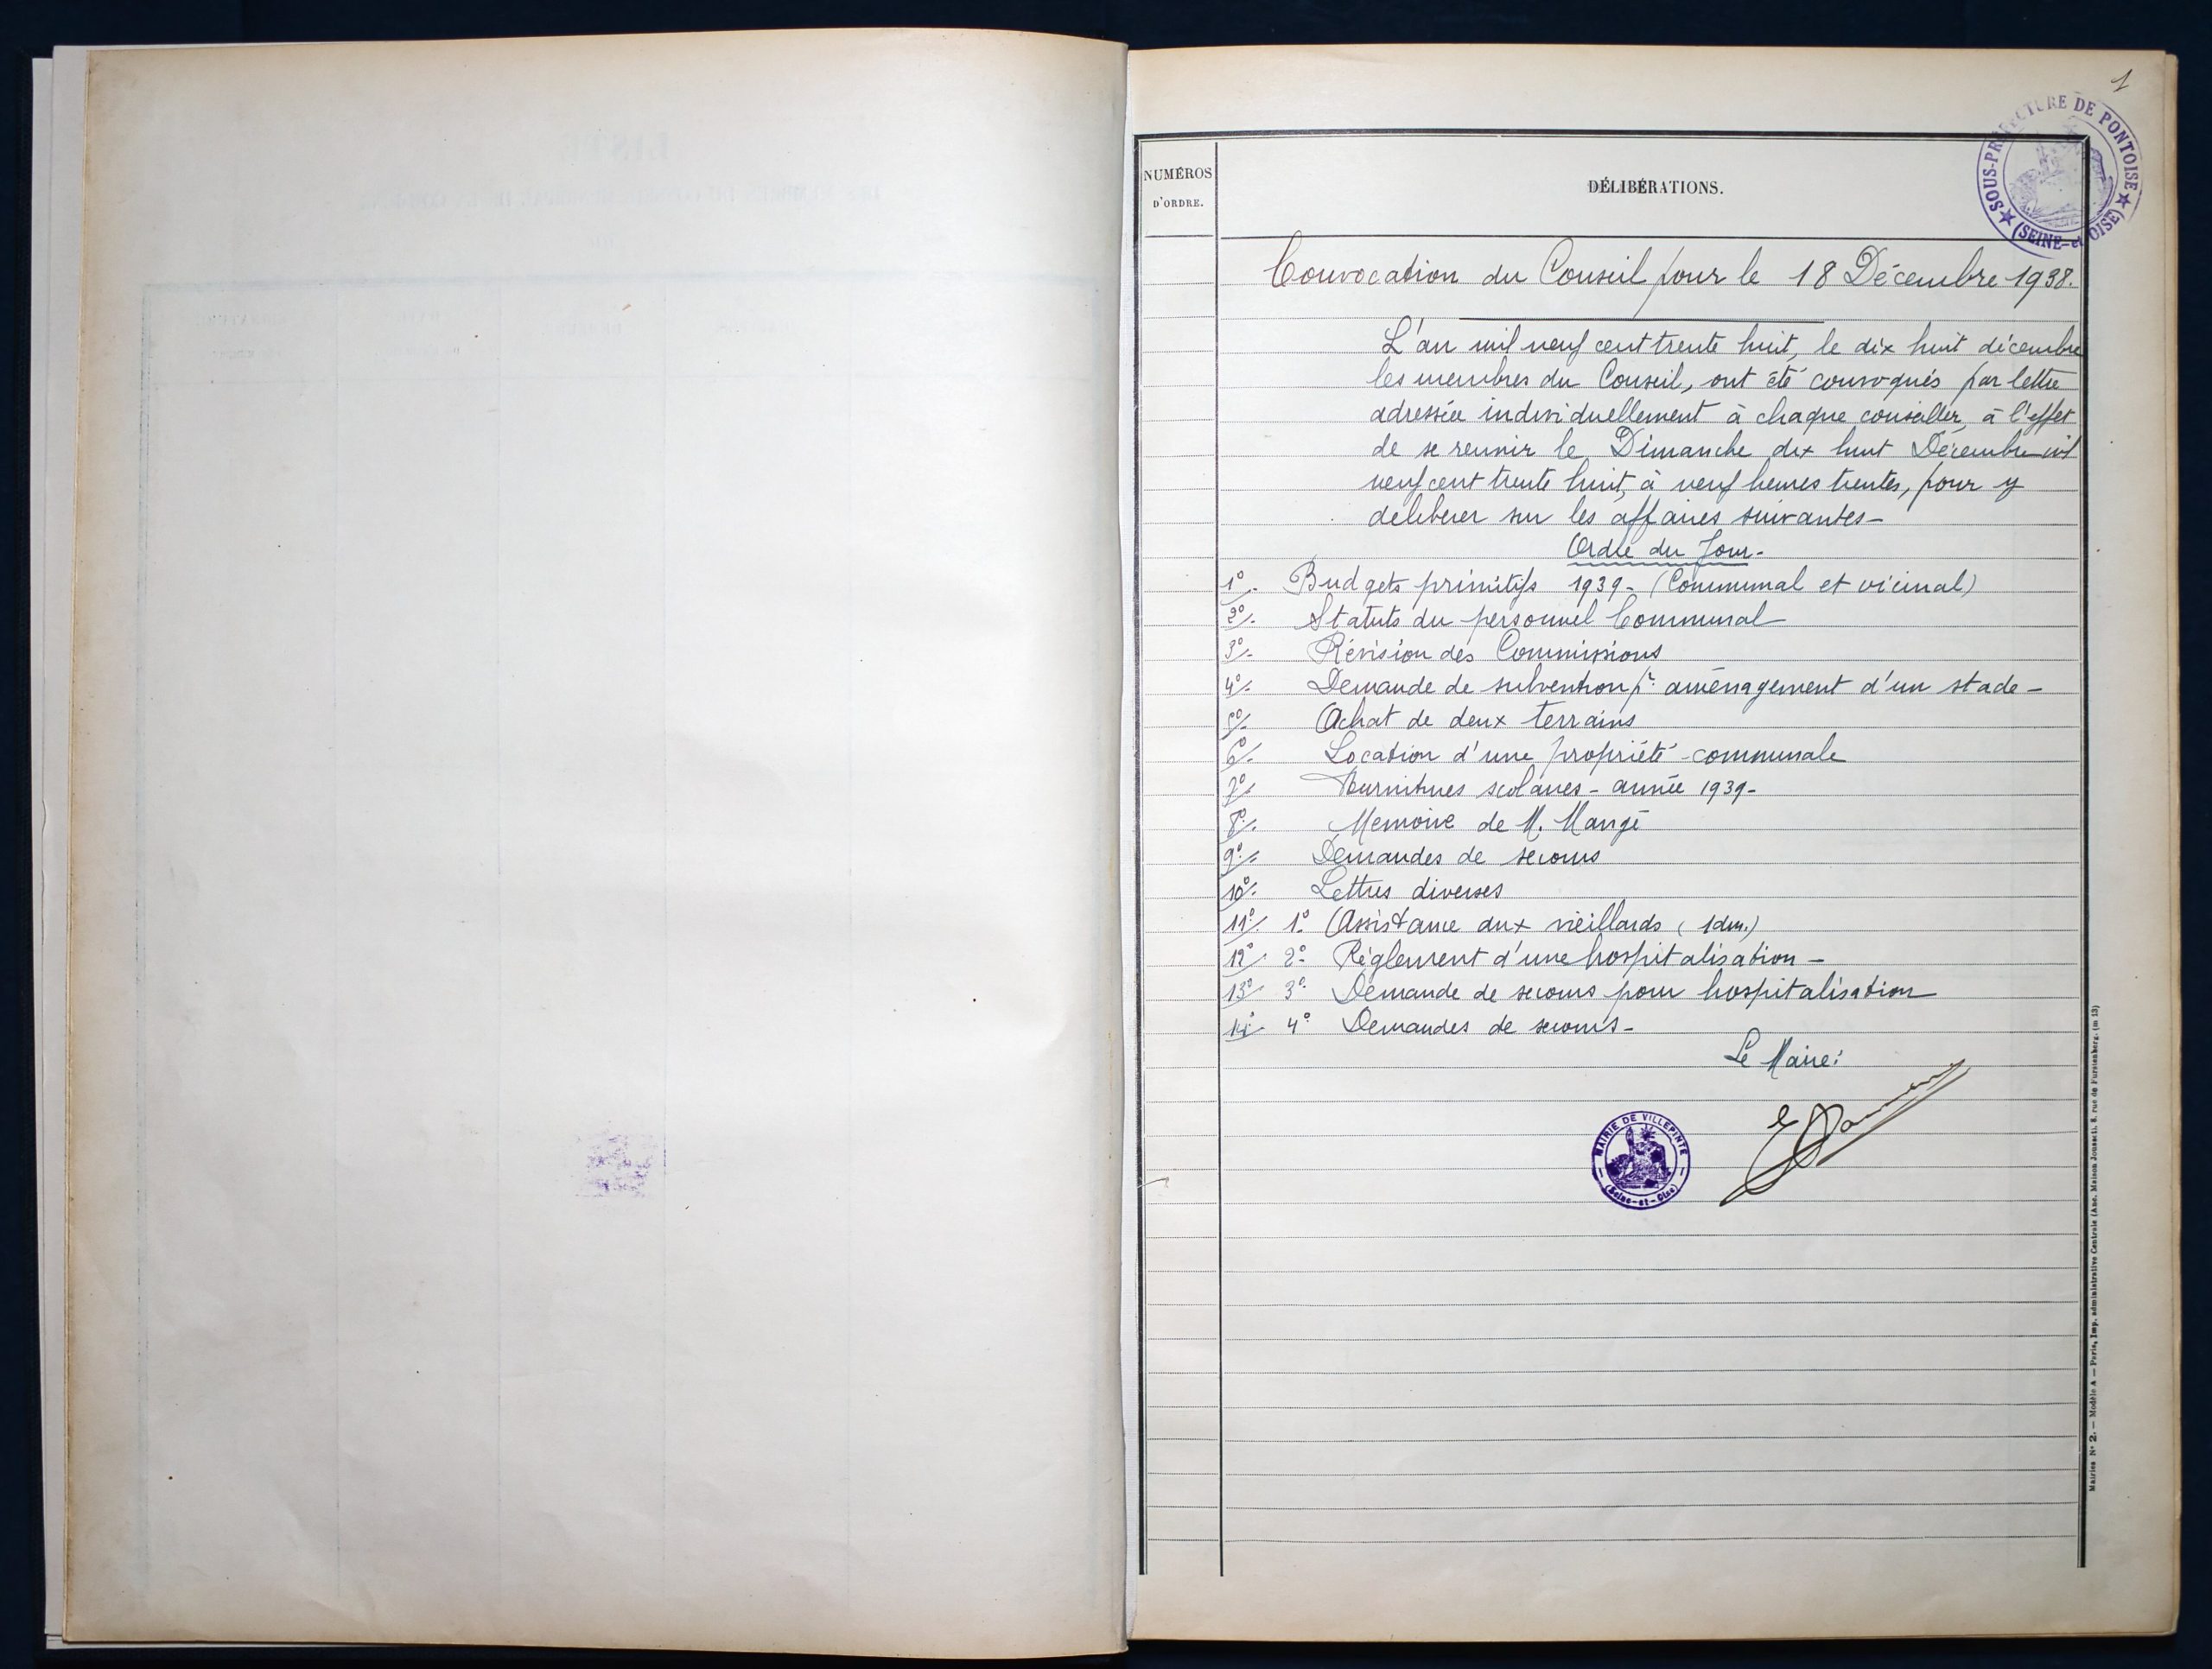 1
SOUS-PRÉFECTURE DE PONTOISE
(SEINE-et-OISE)
NUMÉROS
D'ORDRE.
DÉLIBÉRATIONS.
Convocation du Conseil pour le 18 Décembre 1938.
L'an mil neuf cent trente huit, le dix huit décembre
les membres du Conseil, ont été convoqués par lettre
adressée individuellement à chaque conseiller, à l'effet
de se reunir le Dimanche dix huit Décembre mil
neuf cent trente huit, à neuf heures trentes, pour y
deliberer sur les affaires suivantes-
Ordre du Jour-
1°/- Budgets primitifs 1939- (Communal et vicinal)
2°/- Statuts du personnel Communal
3°/- Révision des Commissions
4°/- Demande de subvention pr aménagement d'un stade-
5°/- Achat de deux terrains
6°/- Location d'une propriété-communale
7°/- Fournitures scolaires- année 1939-
8°/- Memoire de M. Mangé
9°/- Demandes de secours
10°/- Lettres diverses
11°/- 1° Assistance aux vieillards (1 dem.)
12°/- 2° Règlement d'une hospitalisation-
13°/- 3° Demande de secours pour hospitalisation
14°/- 4° Demandes de secours-
Le Maire:
MAIRIE DE VILLEPINTE
(Seine-et-Oise)
Mairies N° 2. — Modèle A — Paris, Imp. administrative Centrale (Anc. Maison Jousset), 8, rue de Furstenberg. (m 13)